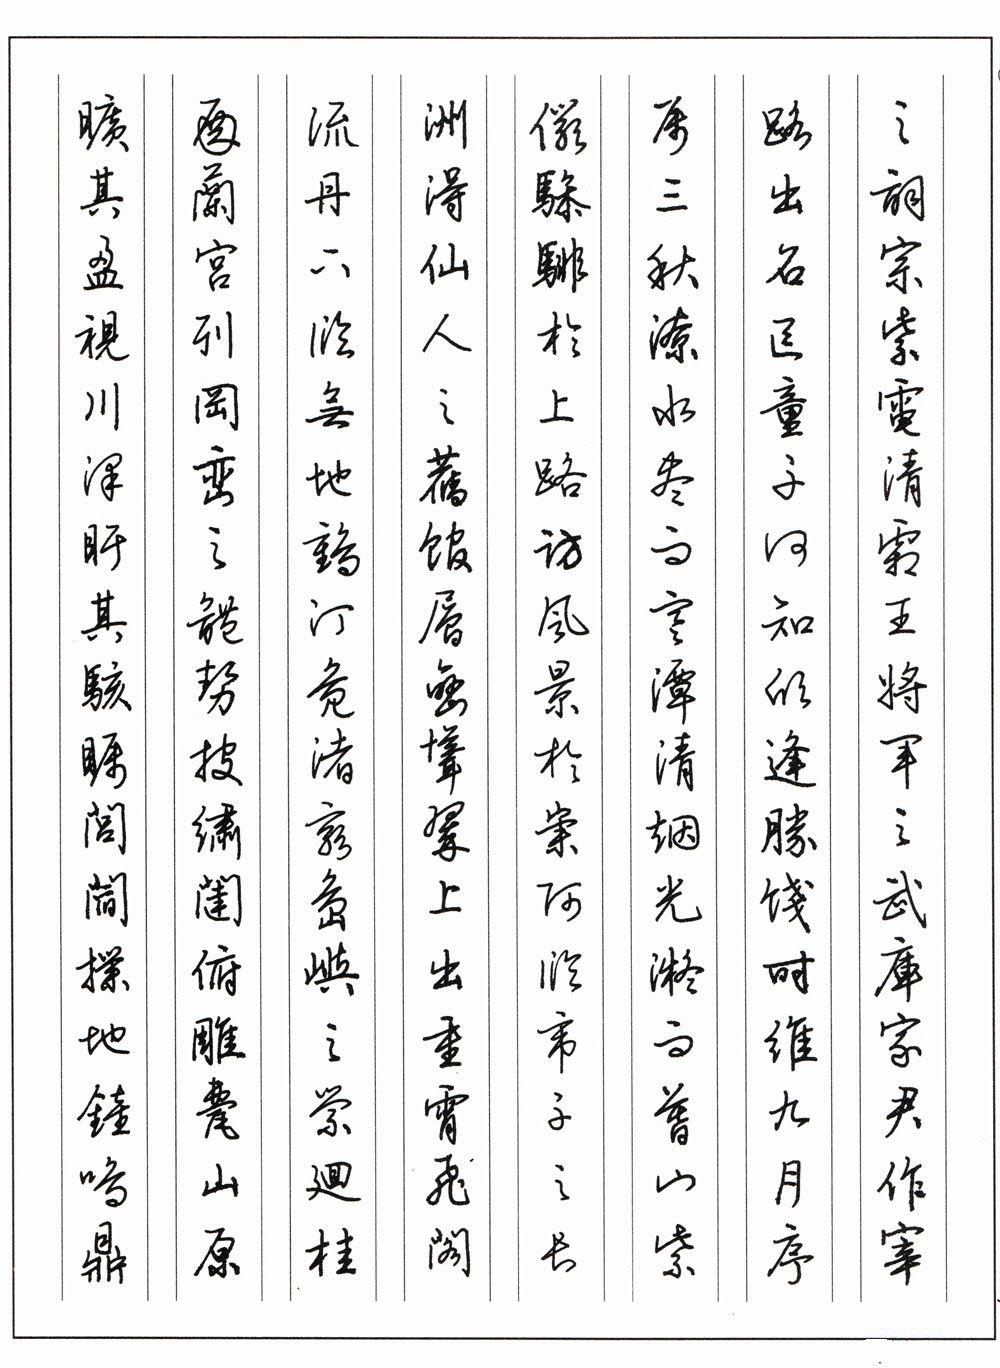 之詞宗紫電清霜王將軍之武庫家君作宰
路出名區童子何知躬逢勝餞時維九月序
属三秋潦水尽而寒潭清烟光凝而暮山紫
儼驂騑於上路訪風景於崇阿臨帝子之長
洲得仙人之舊館層巒聳翠上出重霄飛閣
流丹下臨無地鶴汀鳧渚窮島嶼之縈迴桂
殿蘭宮列岡巒之體勢披繡闥俯雕甍山原
曠其盈視川澤盱其駭矚閭閻撲地鐘鳴鼎